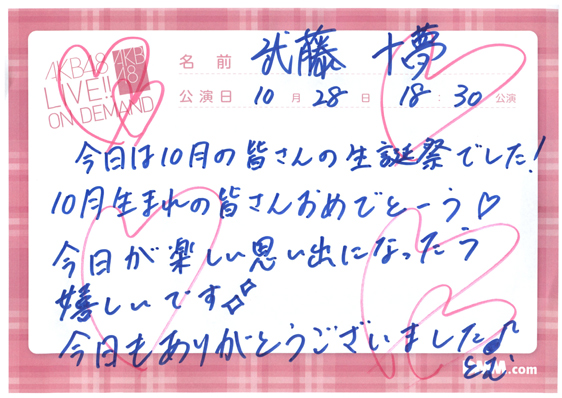 AKB48
LIVE!!
ON DEMAND
AKB
48
名前 武藤 十夢
公演日 10月28日 18:30公演
今日は10月の皆さんの生誕祭でした!
10月生まれの皆さんおめでとーう♡
今日が楽しい思い出になったら
嬉しいです
今日もありがとうございました♪
とむ
.com